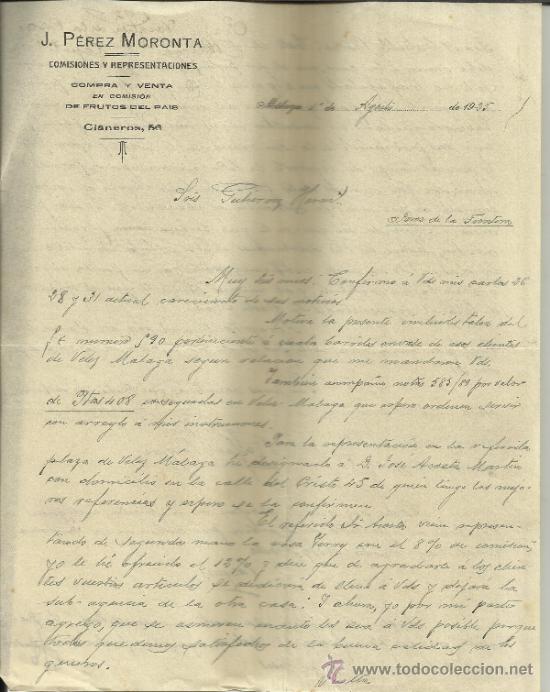 J. PÉREZ MORONTA
COMISIONES Y REPRESENTACIONES
COMPRA Y VENTA
EN COMISIÓN
DE FRUTOS DEL PAIS
Cisneros, 56
Málaga 1º de Agosto de 1925
Srs Gutierrez Herms.
Jerez de la Frontera
Muy Srs mios: Confirmo á Vds mis cartas 26
28 y 31 actual careciendo de sus noticias.
Motiva la presente incluirles talon del
numero 590 perteneciente á cuatro barriles envase de esos clientes
de Velez Malaga segun relacion que me mandaron Vds.
Tambien acompaño notas 585/89 por valor
de Ptas 408 conseguidas en Velez-Malaga que espero ordenen servir
con arreglo á mis instrucciones.
Para la representacion en la referida
plaza de Velez Málaga he designado á D. Jose Acosta Martin
con domicilio en la calle del Cristo 45 de quien tengo las mejo-
res referencias y espero se la confirmen.
El referido Sr Acosta viene represen-
tando de segunda mano la casa en el 8% de comision,
yo le he ofrecido el 12% y dice que de agradarle á los clien-
tes vuestros articulos se dedicará de lleno á Vds y dejara la
sub-agencia de la otra casa. Y ahora, yo por mi parte
agrego, que se esmeren cuanto les sea á Vds posible porque
todos quedemos satisfechos de la buena calidad de los
generos.
www.todocoleccion.net